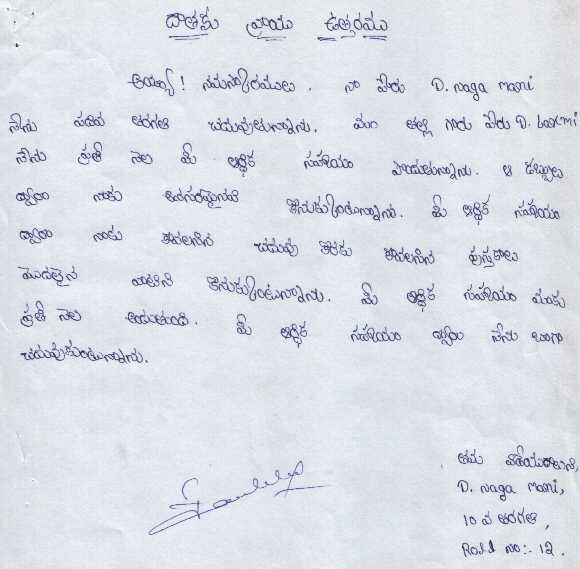 దాతకు వ్రాయు ఉత్తరము
అయ్యా! నమస్కారములు. నా పేరు D. Naga Mani
నేను పదవ తరగతి చదువుతున్నాను. మా తల్లి గారు పేరు D. Laxmi
నేను ప్రతి నెల మీ ఆర్థిక సహాయం పొందుతున్నాను. ఆ డబ్బులు
ద్వారా నాకు అవసరమైనవి కొనుక్కుంటున్నాను. మీ ఆర్థిక సహాయం
ద్వారా నాకు కావలసిన చదువు కొరకు కావలసిన పుస్తకాలు
మొదలైన వాటిని కొనుక్కుంటున్నాను. మీ ఆర్థిక సహాయం మాకు
ప్రతి నెల అందుతుంది. మీ ఆర్థిక సహాయం ద్వారా నేను బాగా
చదువుకుంటున్నాను.
తమ విధేయురాలు,
D. Naga Mani,
10 వ తరగతి,
Roll No:- 12.